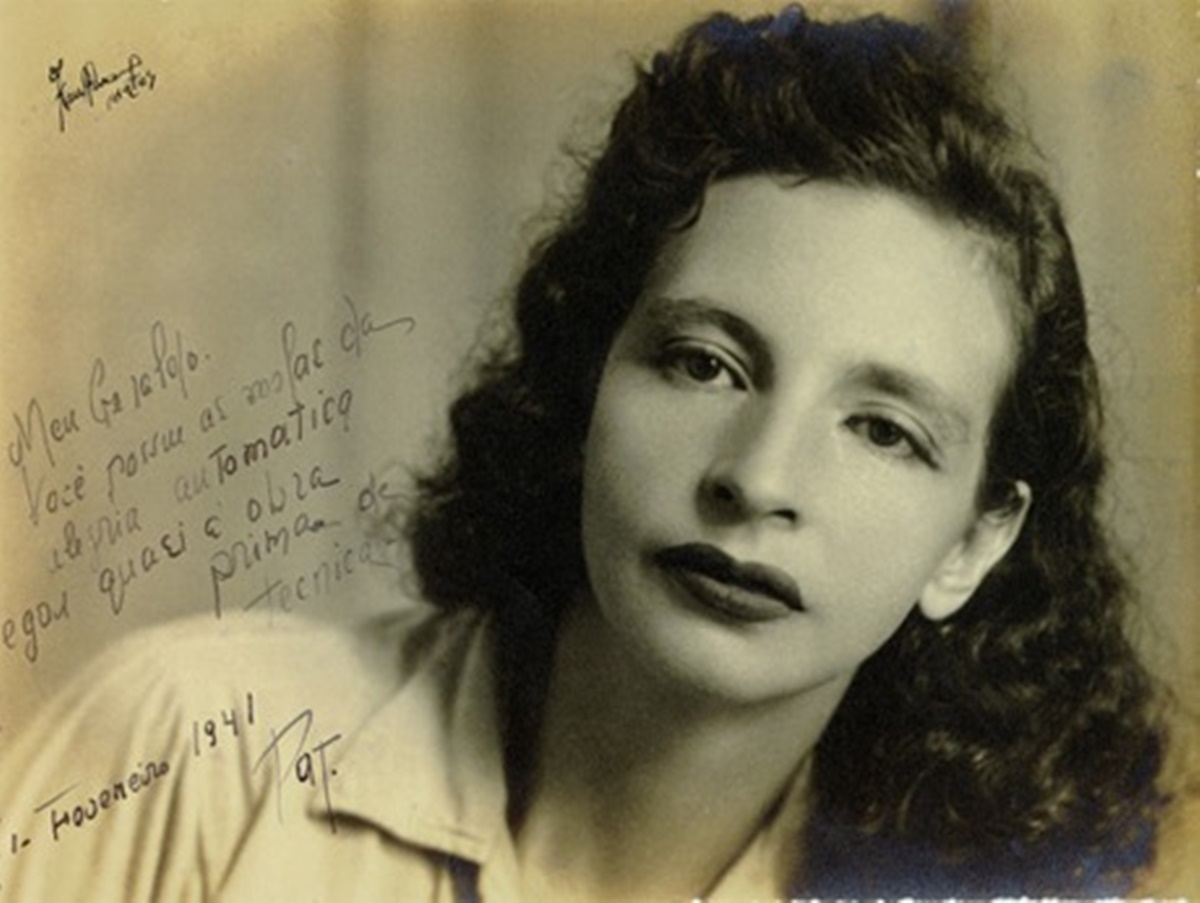 Meu Geraldo.
Você possue as da
alegria automatica
quasi é obra
prima de
tecnica
1- Fevereiro 1941
Pat.